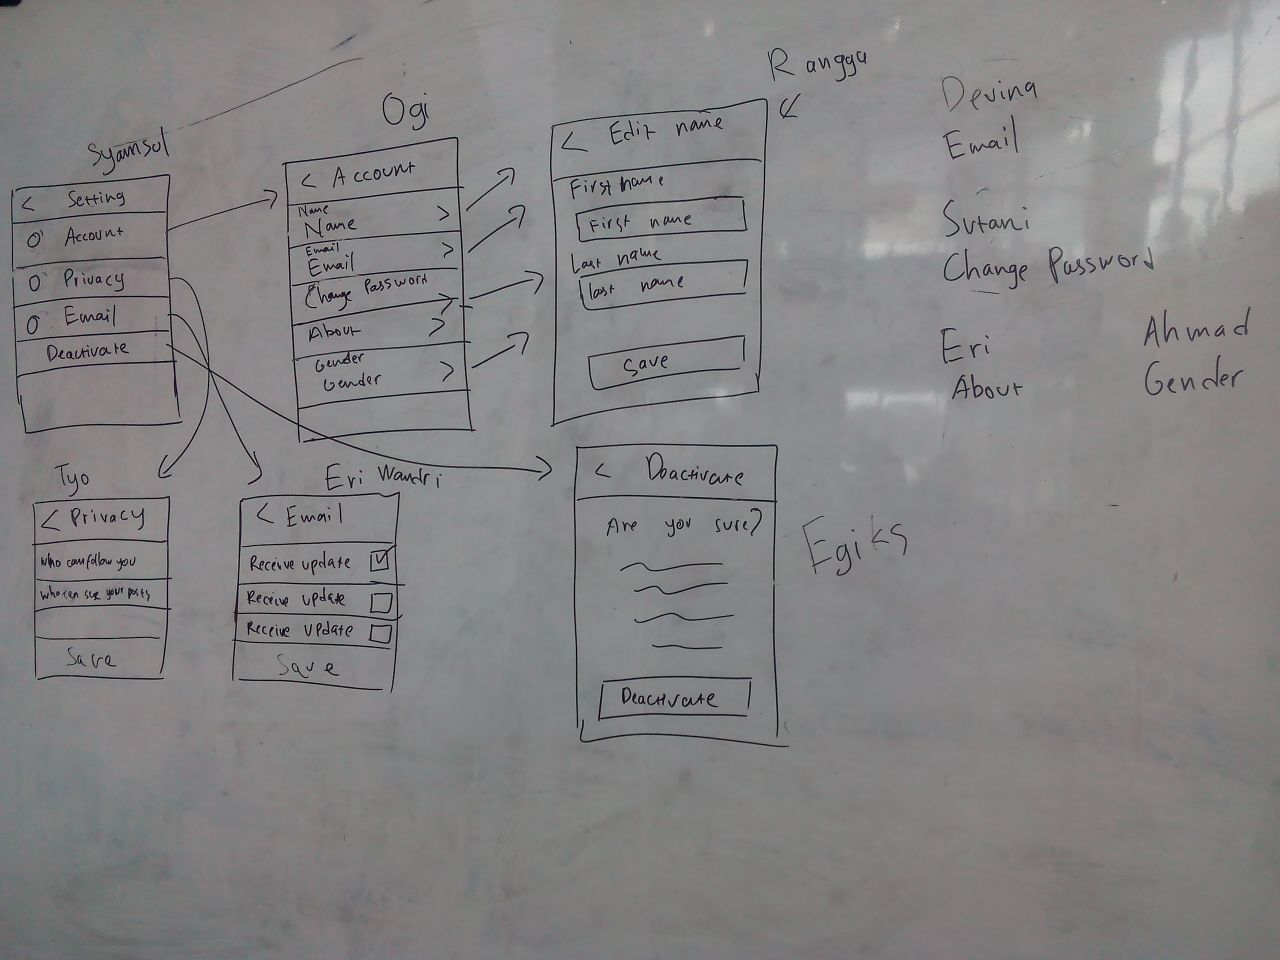 Syamsul
< Setting
Account
Privacy
Email
Deactivate
Ogi
< Account
Name
Name >
Email
Email >
Change Password >
About >
Gender
Gender >
Rangga
< Edit name
First name
First name
Last name
last name
Save
Devina
Email
Sutani
Change Password
Eri
About
Ahmad
Gender
Tyo
< Privacy
who can follow you
who can see your posts
Save
Eri Wandri
< Email
Receive update
Receive update
Receive update
Save
< Deactivate
Are you sure?
Deactivate
Egiks